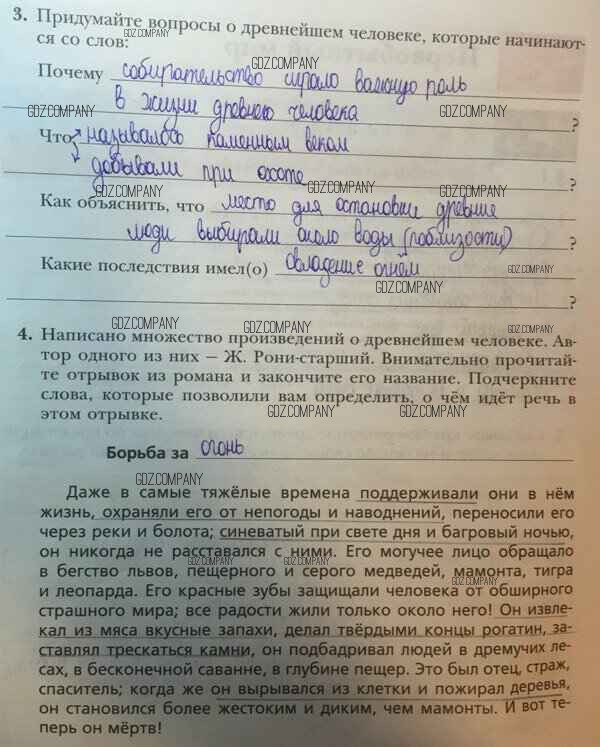 3. Придумайте вопросы о древнейшем человеке, которые начинают-
ся со слов:
GDZ.COMPANY
Почему собирательство играло важную роль
GDZ.COMPANY
в жизни древнего человека ?
GDZ.COMPANY GDZ.COMPANY GDZ.COMPANY
Что называлось каменным веком
добывали при охоте ?
GDZ.COMPANY GDZ.COMPANY GDZ.COMPANY
Как объяснить, что место для остановки древние
люди выбирали около воды (поблизости) ?
GDZ.COMPANY GDZ.COMPANY
Какие последствия имел(о) овладение огнём
GDZ.COMPANY
GDZ.COMPANY
?
GDZ.COMPANY
GDZ.COMPANY GDZ.COMPANY
4. Написано множество произведений о древнейшем человеке. Ав-
тор одного из них – Ж. Рони-старший. Внимательно прочитай-
те отрывок из романа и закончите его название. Подчеркните
слова, которые позволили вам определить, о чём идёт речь в
этом отрывке.
GDZ.COMPANY GDZ.COMPANY
Борьба за огонь
GDZ.COMPANY
Даже в самые тяжёлые времена поддерживали они в нём
жизнь, охраняли его от непогоды и наводнений, переносили его
GDZ.COMPANY
через реки и болота; синеватый при свете дня и багровый ночью,
он никогда не расставался с ними. Его могучее лицо обращало
GDZ.COMPANY
в бегство львов, пещерного и серого медведей, мамонта, тигра
GDZ.COMPANY
и леопарда. Его красные зубы защищали человека от обширного
страшного мира; все радости жили только около него! Он извле-
GDZ.COMPANY
кал из мяса вкусные запахи, делал твёрдыми концы рогатин, за-
ставлял трескаться камни, он подбадривал людей в дремучих ле-
GDZ.COMPANY
сах, в бесконечной саванне, в глубине пещер. Это был отец, страж,
спаситель; когда же он вырывался из клетки и пожирал деревья,
GDZ.COMPANY
он становился более жестоким и диким, чем мамонты. И вот те-
перь он мёртв!